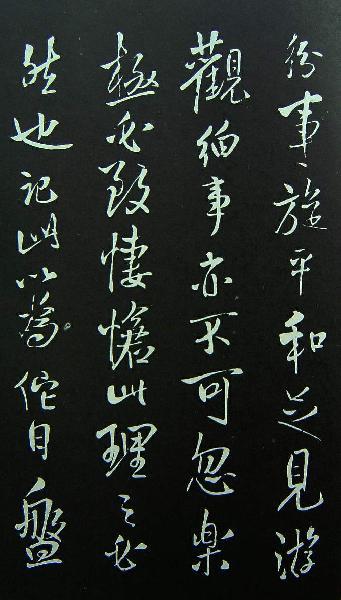 事旋平和足見游
觀細事亦不可忽樂
極必致悽愴此理之必
然也記此以為佗日盤